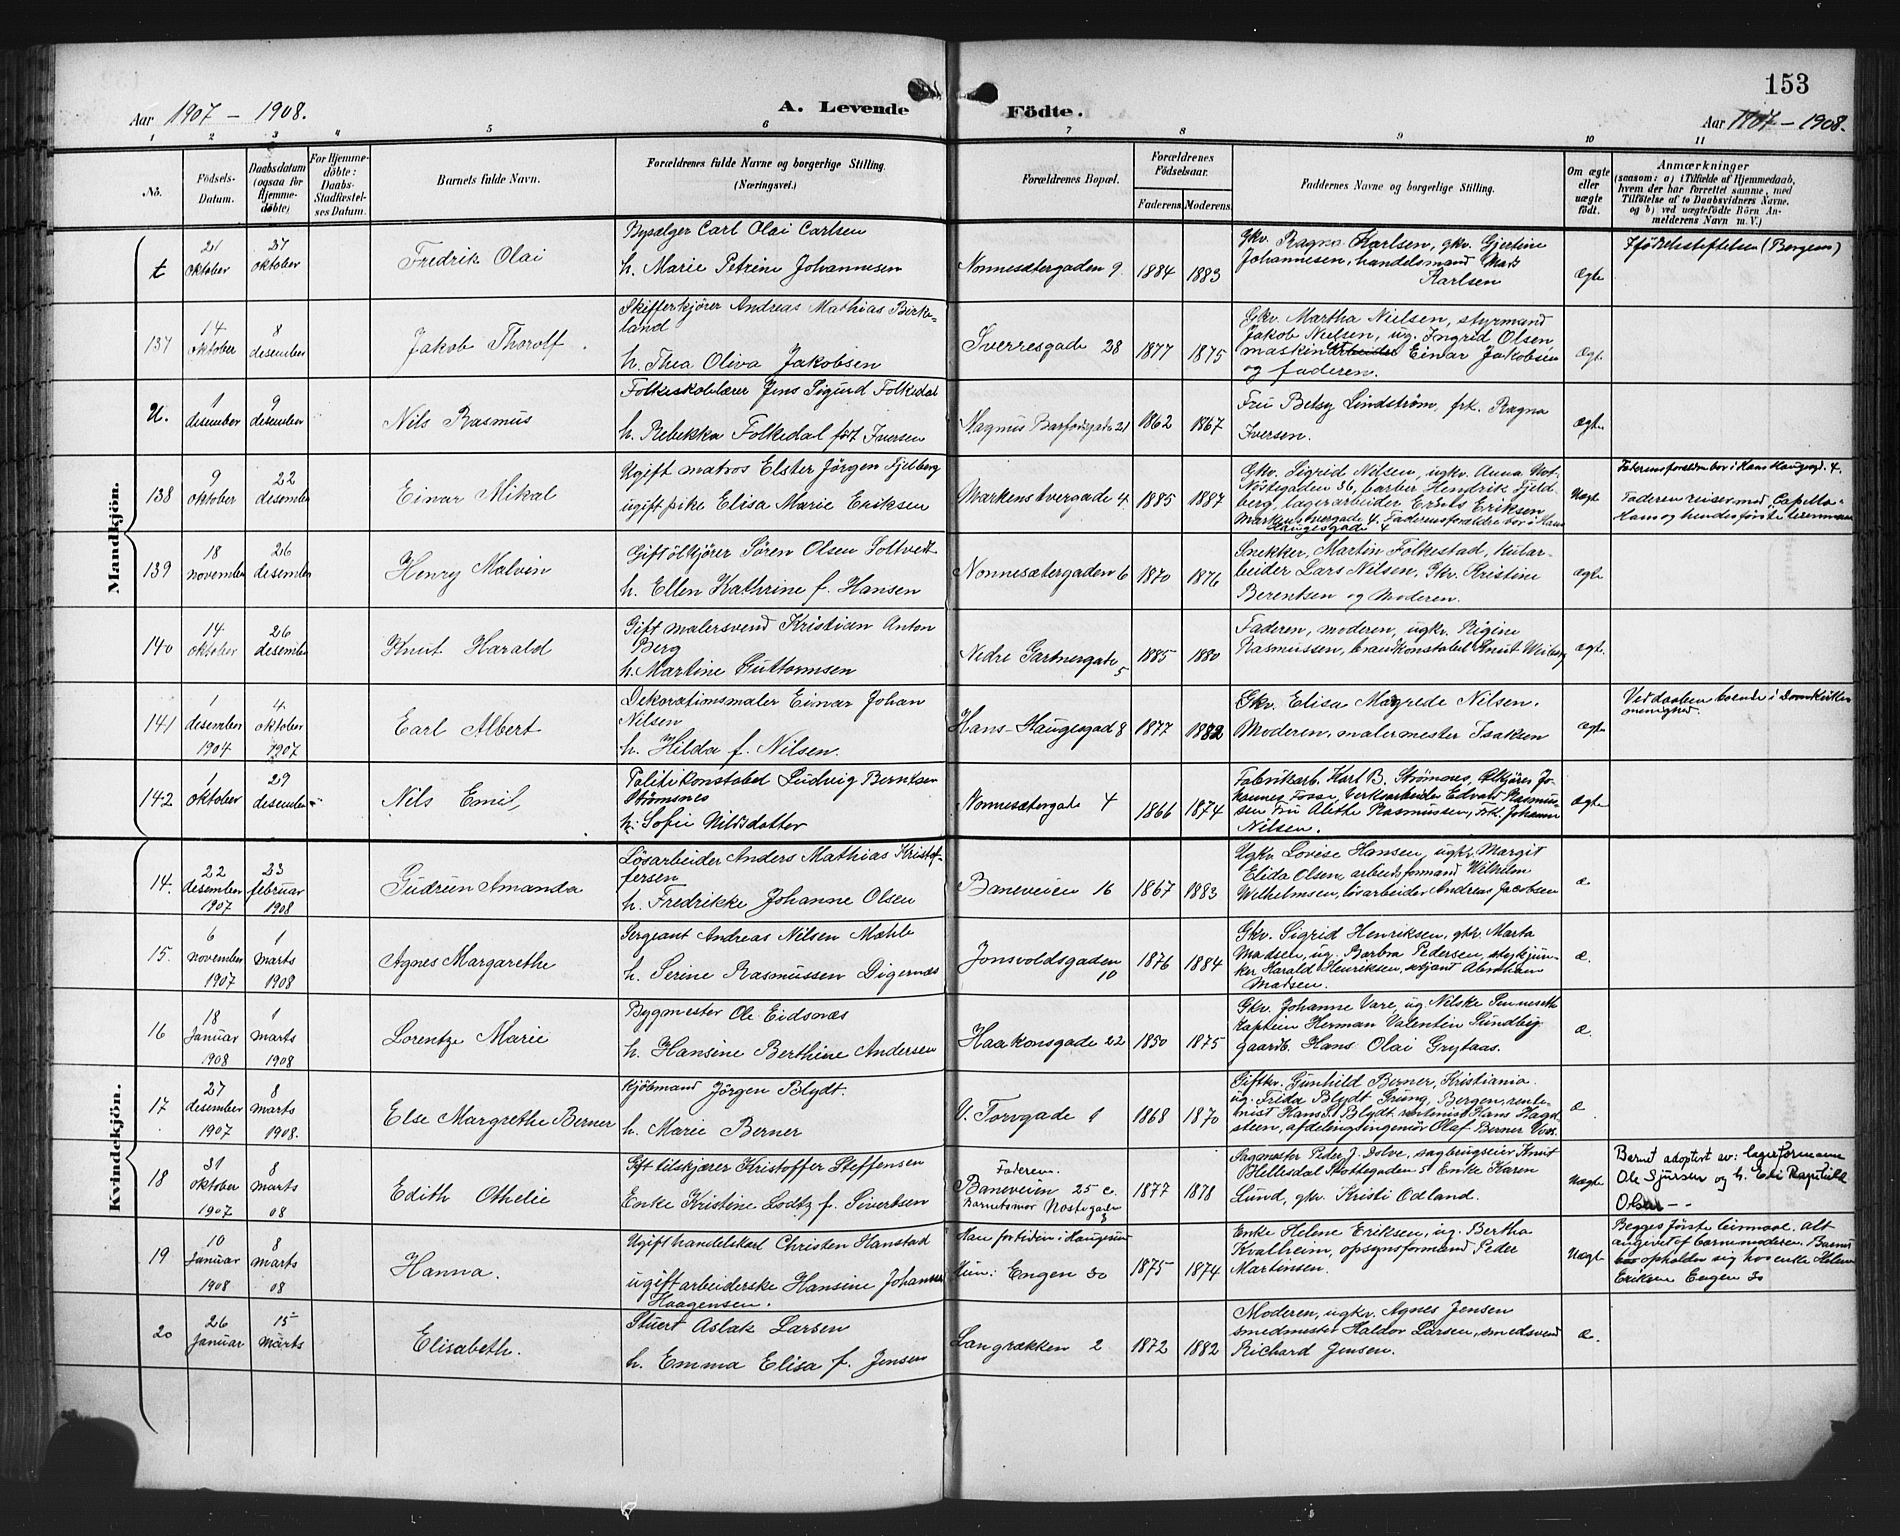 153
Aar 1907 – 1908.
A. Levende
Födte.
Aar 1907 – 1908.
1 2 3 4 5 6 7 8 9 10 11
No.
Födsels-
Datum.
Daabsdatum
(ogsaa for
Hjemme-
døbte)
For Hjemme-
døbte:
Daabs-
Stadfæstel-
ses Datum.
Barnets fulde Navn.
Forældrenes fulde Navne og borgerlige Stilling.
(Næringsvei.)
Forældrenes Bopæl.
Forældrenes
Födselsaar.
Faderens. Moderens.
Faddernes Navne og borgerlige Stilling.
Om ægte
eller
uægte
født.
Anmærkninger
(saasom: a) i Tilfælde af Hjemmedaab,
hvem der har forrettet samme, med
Tilføielse af to Daabsvidners Navne.
og b) ved uægtefödte Börn An-
melderens Navn m. V.)
Mandkjön.
t
21
oktober
27
oktober
Fredrik Olai
Bysælger Carl Olai Carlsen
h. Marie Petrine Johannesen
Nonnesætergaden 9.
1884
1883
Gkv. Ragna Karlsen, gkv. Gjertine
Johannesen, handelsmand Mads
Karlsen
Ægte
Fødselsstiftelsen (Bergens)
137
14
oktober
8
desember
Jakob Thorolf
Skifferkjører Andreas Mathias Birke-
land
h. Thea Oliva Jakobsen
Sverresgade 28
1877
1875
Gkv. Martha Nielsen, styrmand
Jakob Nielsen, ug. Ingrid Olsen,
maskinarbeider Einar Jakobsen
og faderen.
Ægte
u.
1
desember
9
desember
Nils Rasmus
Folkeskolelærer Jens Sigurd Folkedal
h. Rebekka Folkedal født Iversen
Magnus Barfodsgade 21
1862
1867
Fru Betsy Lindström, frk. Ragna
Iversen.
Ægte
138
9
oktober
22
desember
Einar Mikal
Ugift matros Elster Jörgen Fjelberg
ugift pike Elisa Marie Eriksen
Markens tvergade 4.
1885
1887
Gkv. Sigrid Nilsen, ugkv. Anna
Nøstegaden 36, barber Hendrik Fjeld-
berg, lagerarbeider Eriksen
Markens tvergade 4. Faderens forældre bor i Hans
Haugesgade 4
Uægte
Faderens forældre bor i Hans Haugesgd. 4.
Faderen reiser med „Capella”
Hans og hendes første leiermaal
139
18
november
26
desember
Henry Malvin
Gift ölkjörer Sören Olsen Soltvedt
h. Ellen Kathrine f. Hansen
Nonnesætergaden 6
1870
1876
Snekker, Martin Folkestad,
Lars Nilsen, Gkv. Kristine
Berentsen og Moderen.
ægte
140
14
oktober
26
desember
Knut Harald
Gift malersvend Kristian Anton
Berg
h. Martine Guttormsen
Nedre Gartnergade
5
1885
1880
Faderen, moderen, ugkv. Rigine
Rasmussen, brandkonstabel Knut
ægte.
141
1
desember
1904
4.
oktober
1907
Earl Albert
Dekorationsmaler Einar Johan
Nilsen
h. Hilda f. Nilsen.
Hans-Haugesgad 8
1877
1882
Gkv. Elisa Magrede Nilsen.
Moderen, malermester Isaksen
ægte
Ved daaben boende i Domkirken
menighed.
142
1
oktober
29
desember
Nils Emil,
Politikonstabel Ludvig Berntsen
Strömsnes
h. Sofie Nilsdatter
Nonnesætergade 4
1866
1874
Fabrikarb. Karl B. Strömsnes, Ølkjører Jo-
hannes Fosse, Verksarbeider Edvard Rasmus-
sen Fru Alethe Rasmussen, Frk. Johanne
Nilsen.
ægte
Kvindekjön.
14.
22
desember
1907
23
februar
1908
Gudrun Amanda
Lösarbeider Anders Mathias Kristof-
fersen
h. Fredrikke Johanne Olsen
Baneveien 16
1867
1883
Ugkv. Lovise Hansen, ugkv. Margit
Elida Olsen, arbeidsformand Wilhelm
Wilhelmsen, lösarbeider Andreas Jacobsen
æ
15.
6
november
1907
1
marts
1908
Agnes Margarethe
Sergeant Andreas Nilsen Mæhle
h. Serine Rasmussen Digernæs
Jonsvoldsgaden
10
1876
1884
Gkv. Sigrid Henriksen, gkv. Marta
Madsen, ug. Barbra Pedersen, stykjun-
ker Harald Henriksen, serjant Abraham
Madsen.
æ.
16
18
Januar
1908
1
marts
1908
Lorentze Marie
Bygmester Ole Eidsnæs
h. Hansine Berthine Andersen
Haakonsgade 22
1850
1875
Gkv. Johanne Vare, ug. Nilske
Kaptein Herman Valentin Sundby
gaardb. Hans Olai Grytaas.
æ.
17
27
desember
1907
8
marts
1908.
Else Margrethe Berner
Kjöbmand Jörgen Blydt.
h. Marie Berner
V. Torvgade 1
1868
1870
Giftkv. Gunhild Berner, Kristiania.
ug. Frida Blydt Grung, Bergen, rente-
nist Hans S. Blydt, rentenist Hans
stein, afdelingsingeniör Olaf Berner Voss.
æ.
18
31
oktober
1907
8
marts
08
Edith Othelie
Gift tilskjærer Kristoffer Steffensen
Enke Kristine Lodtz f. Sivertsen
Faderen.
Baneveien 25 c.
Barnetsmor Nöstegaden
3
1877
1878
Sagmester Peder J. Dolve, Knut
Hellesdal Skottegaden 5 Enke Karen
Lund, gkv. Kristi Odland.
Uægte
Barnet adoptert av: lagerformann
Ole Sjursen og h. Eli Ragnhild
Olsen – –
19
10
Januar
1908
8
marts
08
Hanna.
Ugift handelskarl Christen Hanstad
ugift arbeiderske Hansine Johannes
Haagensen.
Han fortiden i Haugesund
Hun: Engen 30
1875
1874
Enke Helene Eriksen, ug. Bertha
Kvalheim, opsynsformand Peder
Martinsen.
Uægte
Begges förste leiermaal, alt
angivet af barnemoderen. Barnet
opholder sig hos enke Helene
Eriksen Engen 30
20
26
Januar
15
märts
Elisabeth.
Stuert Aslak Larsen
h. Emma Elisa f. Jensen
Langrækken 2
1872
1882
Moderen, ugkv. Agnes Jensen
smedmester Haldor Larsen, smedsvend
Richard Jensen.
æ.